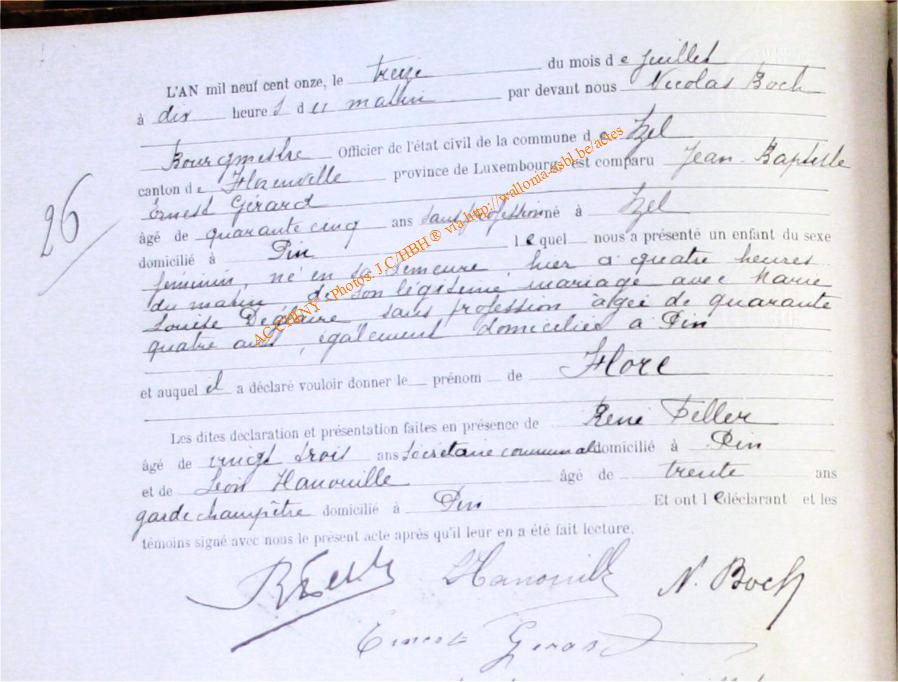 L'AN mil neuf cent onze, le treize du mois de juillet
à dix heures du matin par devant nous Nicolas Boch
Bourgmestre Officier de l'état civil de la commune de Izel
canton de Florenville province de Luxembourg est comparu Jean-Baptiste
Ernest Gérard
âgé de quarante cinq ans sans profession né à Izel
domicilié à Pin lequel nous a présenté un enfant du sexe
féminin, né en sa demeure, hier à quatre heures
du matin de son légitime mariage avec Marie
Louise Deglaire sans profession âgée de quarante
quatre ans, également domiciliée à Pin
26
et auquel il a déclaré vouloir donner le prénom de Flore
Les dites déclaration et présentation faites en présence de René Feller
âgé de vingt trois ans secrétaire communal domicilié à Pin
et de Léon Hanouille âgé de trente ans
garde champêtre domicilié à Pin Et ont le déclarant et les
témoins signé avec nous le présent acte après qu'il leur en a été fait lecture.
L Hanouille N. Boch
Ernest Gérard
Photos: J.C/HBH® via http://wallonia-asbl.be/actes